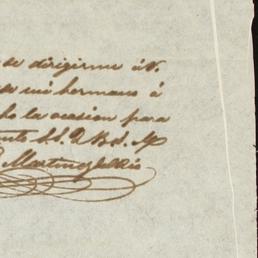 se dirigirme á V.
se mi hermano á
la ocasion para
S.S.Q.B.S.M.
Martinez del Rio